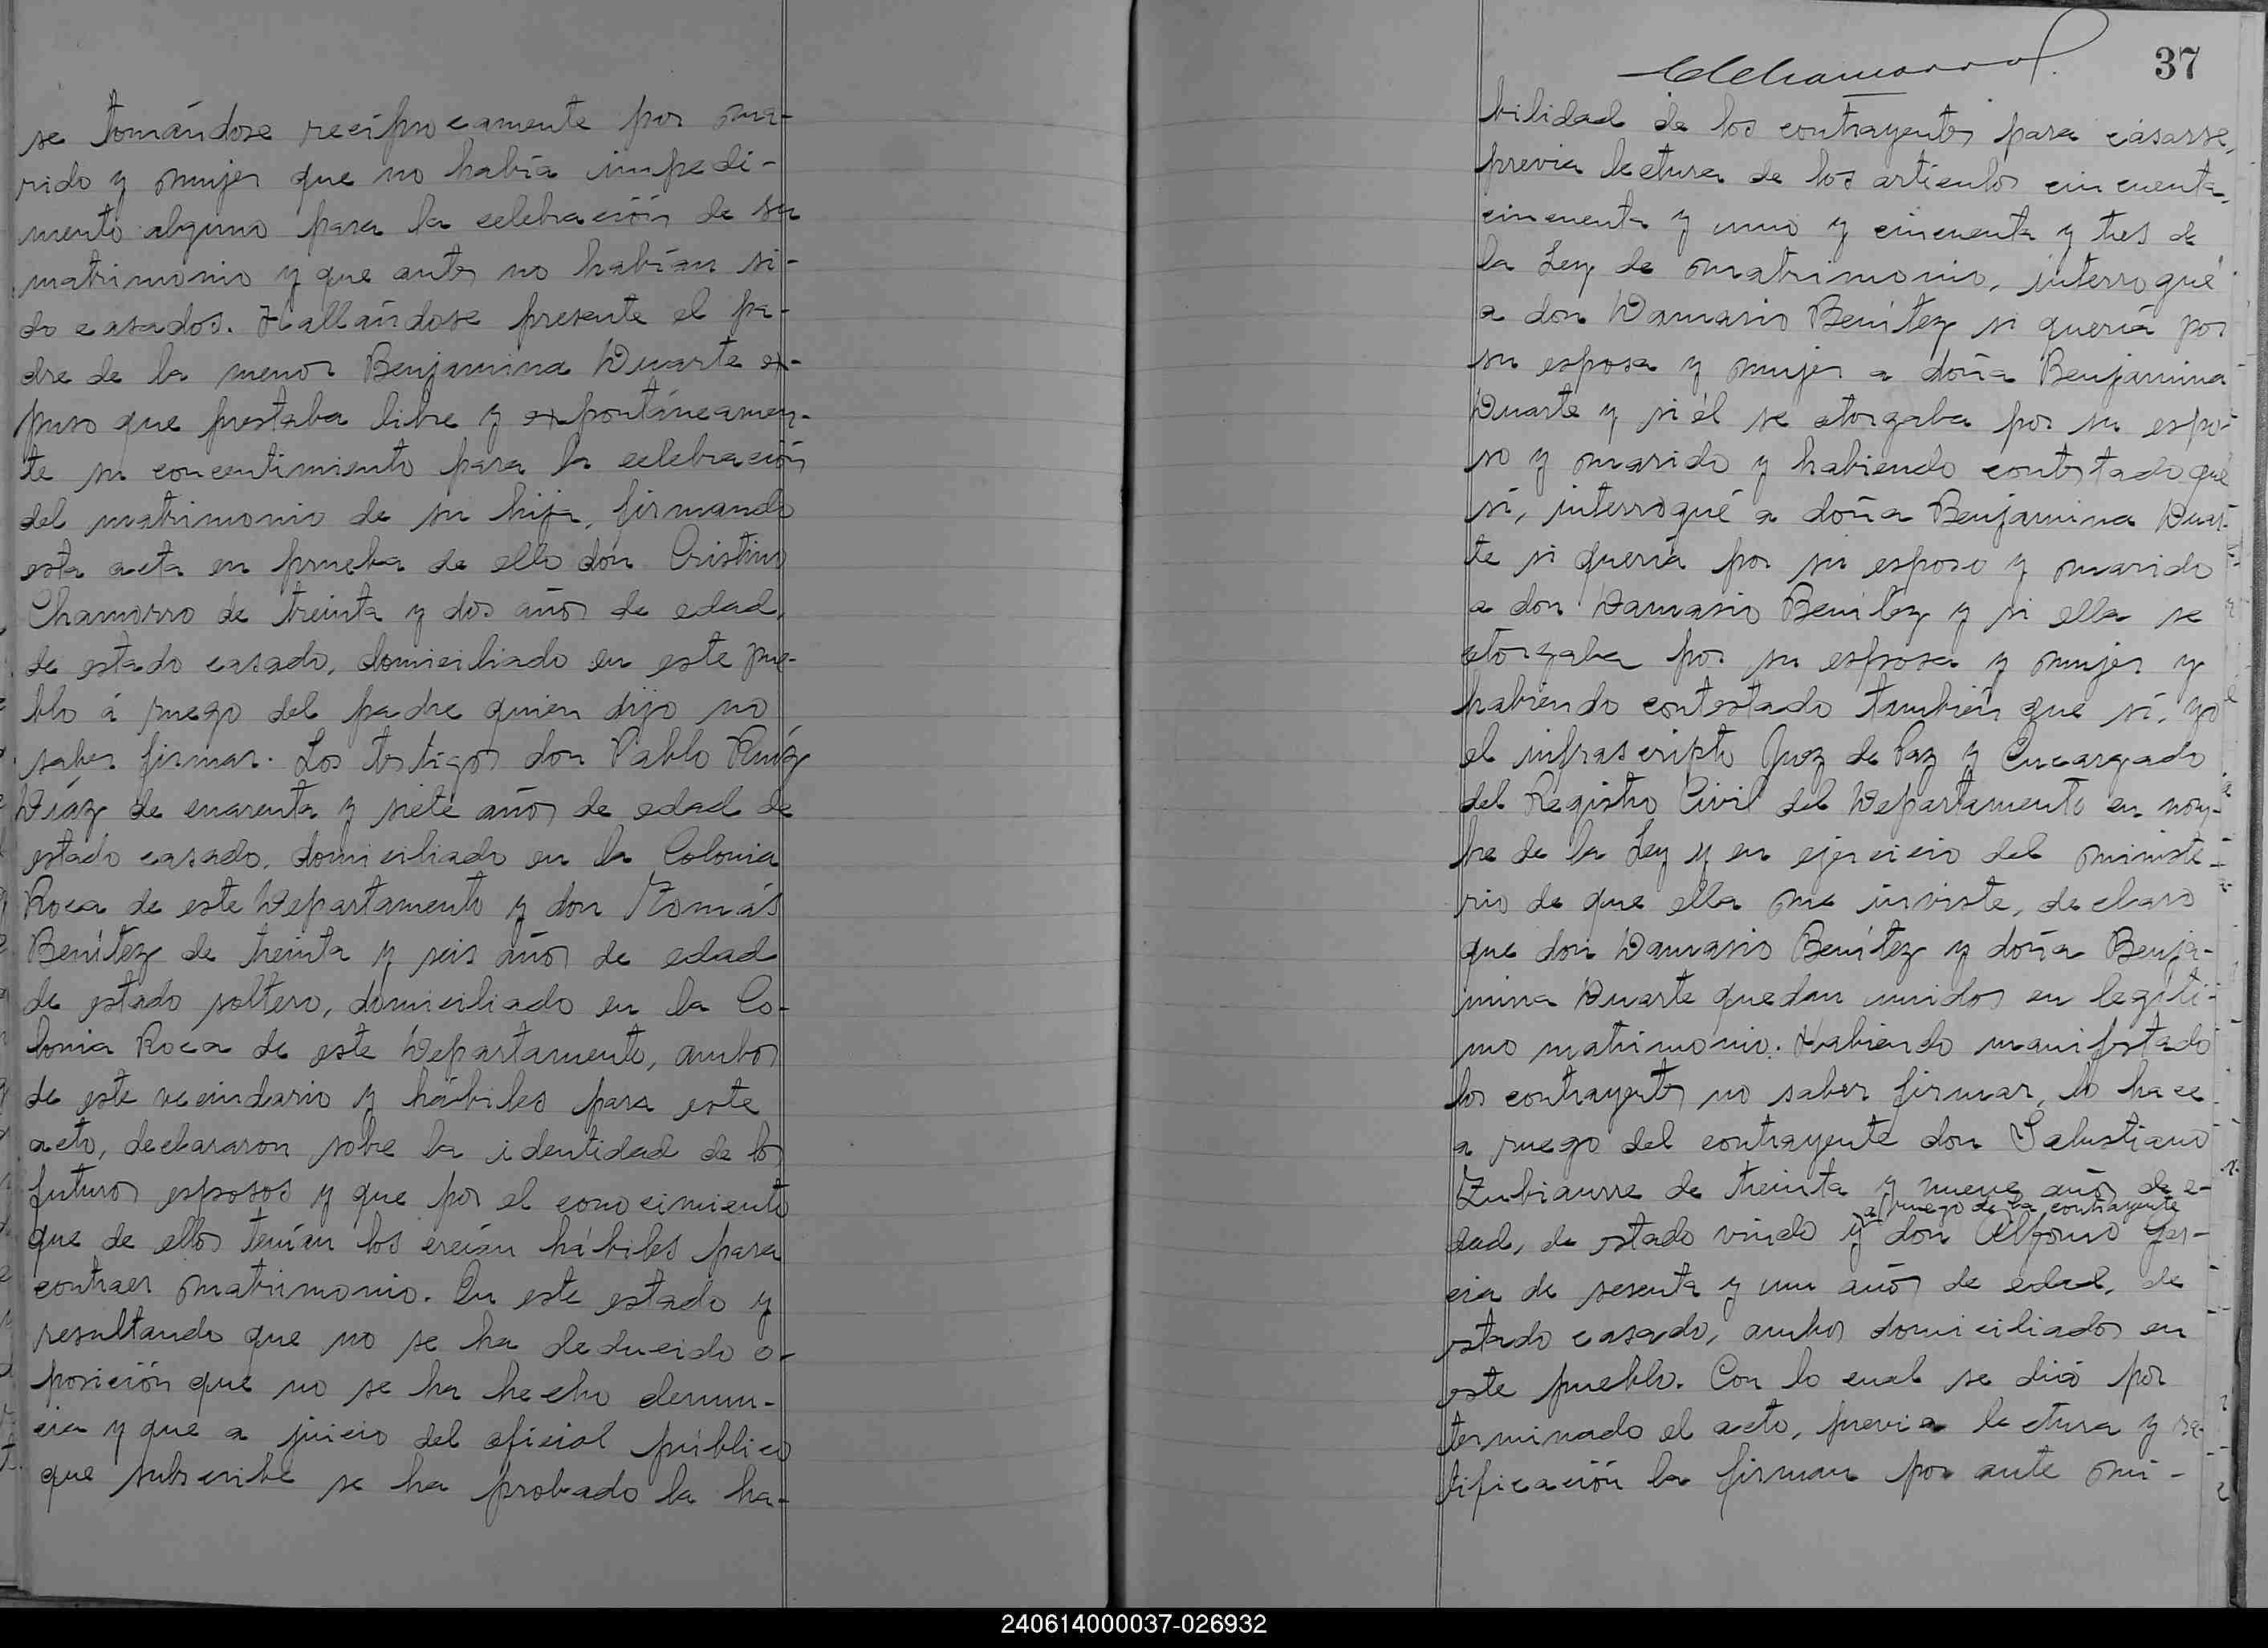 se tomándose recíprocamente por ma-
rido y mujer que no había impedi-
mento alguno para la celebración de su
matrimonio y que antes no habían si-
do casados. Hallándose presente el pa-
dre de la menor Benjamina Duarte ex-
puso que prestaba libre y expontáneamen-
te su concentimiento para la celebración
del matrimonio de su hija, firmando
esta acta en prueba de ello don Cristino
Chamorro de treinta y dos años de edad,
de estado casado, domiciliado en este pue-
blo á ruego del padre quien dijo no
saber firmar. Los testigos don Pablo Ruíz
Díaz de cuarenta y siete años de edad de
estado casado, domiciliado en la Colonia
Roca de este Departamento y don Tomás
Benítez de treinta y seis años de edad
de estado soltero, domiciliado en la Co-
lonia Roca de este Departamento, ambos
de este vecindario y hábiles para este
acto, declararon sobre la identidad de los
futuros esposos y que por el conocimiento
que de ellos tenían los creían hábiles para
contraer matrimonio. En este estado y
resultando que no se ha deducido o-
posición que no se ha hecho denun-
cia y que a juicio del oficial público
que subscribe se ha probado la ha-
37
bilidad de los contrayentes para casarse,
previa lectura de los artículos cincuenta,
cincuenta y uno y cincuenta y tres de
la Ley de matrimonio, interrogué
a don Damasio Benítez si quería por
su esposa y mujer a doña Benjamina
Duarte y si él se otorgaba por su espo-
so y marido y habiendo contestado que
sí, interrogué a doña Benjamina Duar-
te si quería por su esposo y marido
a don Damasio Benítez y si ella se
otorgaba por su esposa y mujer y
habiendo contestado también que sí, yo
el infrascripto Juez de Paz y Encargado
del Registro Civil del Departamento en nom-
bre de la Ley y en ejercicio del ministe-
rio de que ella me inviste, declaro
que don Damasio Benítez y doña Benja-
mina Duarte quedan unidos en legíti-
mo matrimonio. Habiendo manifestado
los contrayentes no saber firmar, lo hace
a ruego del contrayente don Salustiano
Zubiaurre de treinta y nueve años de e-
a ruego de la contrayente
dad, de estado viudo y don Alfonso Gar-
cia de sesenta y un años de edad, de
estado casado, ambos domiciliados en
este pueblo. Con lo cual se dió por
terminado el acto, previa lectura y ra-
tificación la firman por ante mi-
240614000037-026932